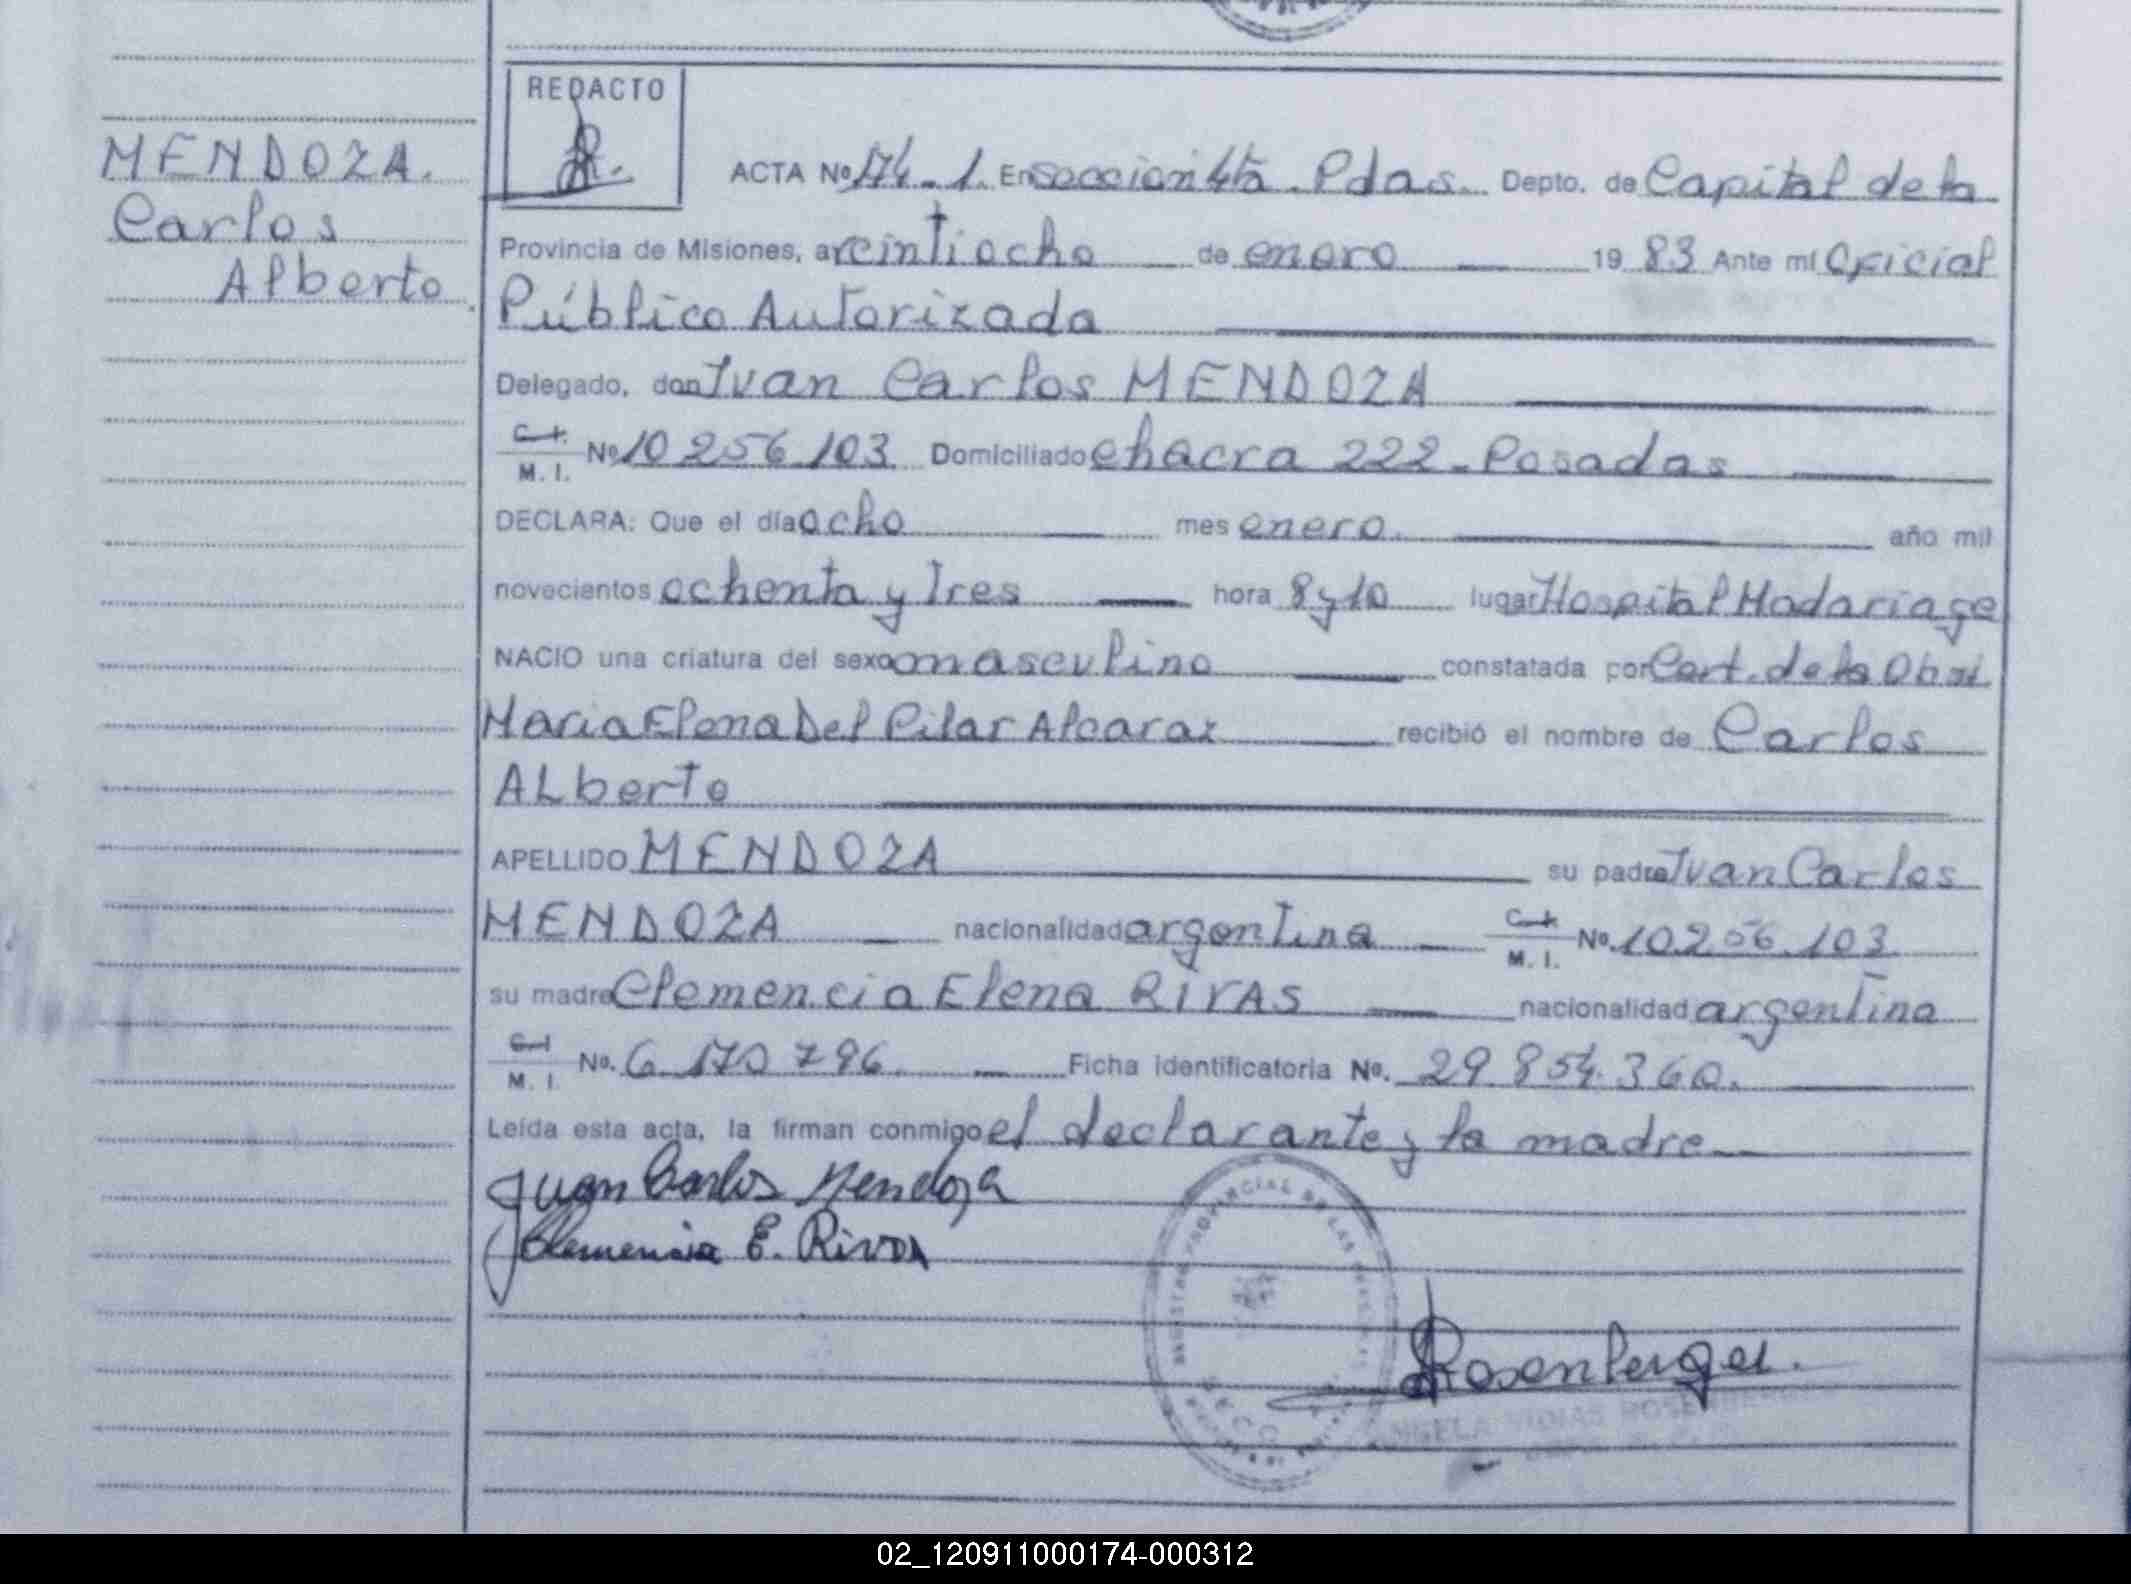 REDACTO
MENDOZA.
Carlos
Alberto
ACTA No 174-1. En sección 4ta. Pdas. Depto. de Capital de la
Provincia de Misiones, a veintiocho de enero 1983 Ante mí Oficial
Público Autorizada
Delegado, don Juan Carlos MENDOZA
C. I.
M. I. No 10 256 103 Domiciliado chacra 222 - Posadas
DECLARA: Que el día ocho mes enero. año mil
novecientos ochenta y tres hora 8 y 10 lugar Hospital Madariaga
NACIO una criatura del sexo masculino constatada por Cert. de la Obst.
Maria Elena Del Pilar Alcaraz recibió el nombre de Carlos
ALberto
APELLIDO MENDOZA su padre Juan Carlos
MENDOZA nacionalidad argentina C. I.
M. I. No. 10.256.103
su madre Clemencia Elena RIVAS nacionalidad argentina
C. I.
M. I. No. 6.170.796. Ficha identificatoria No. 29.854.360.
Leída esta acta, la firman conmigo el declarante y la madre
Juan Carlos Mendoza
Clemencia E. Rivas
PROVINCIAL DE LAS
SECC
Rosenberger.
ANGELA ROSENBERGER
02_120911000174-000312